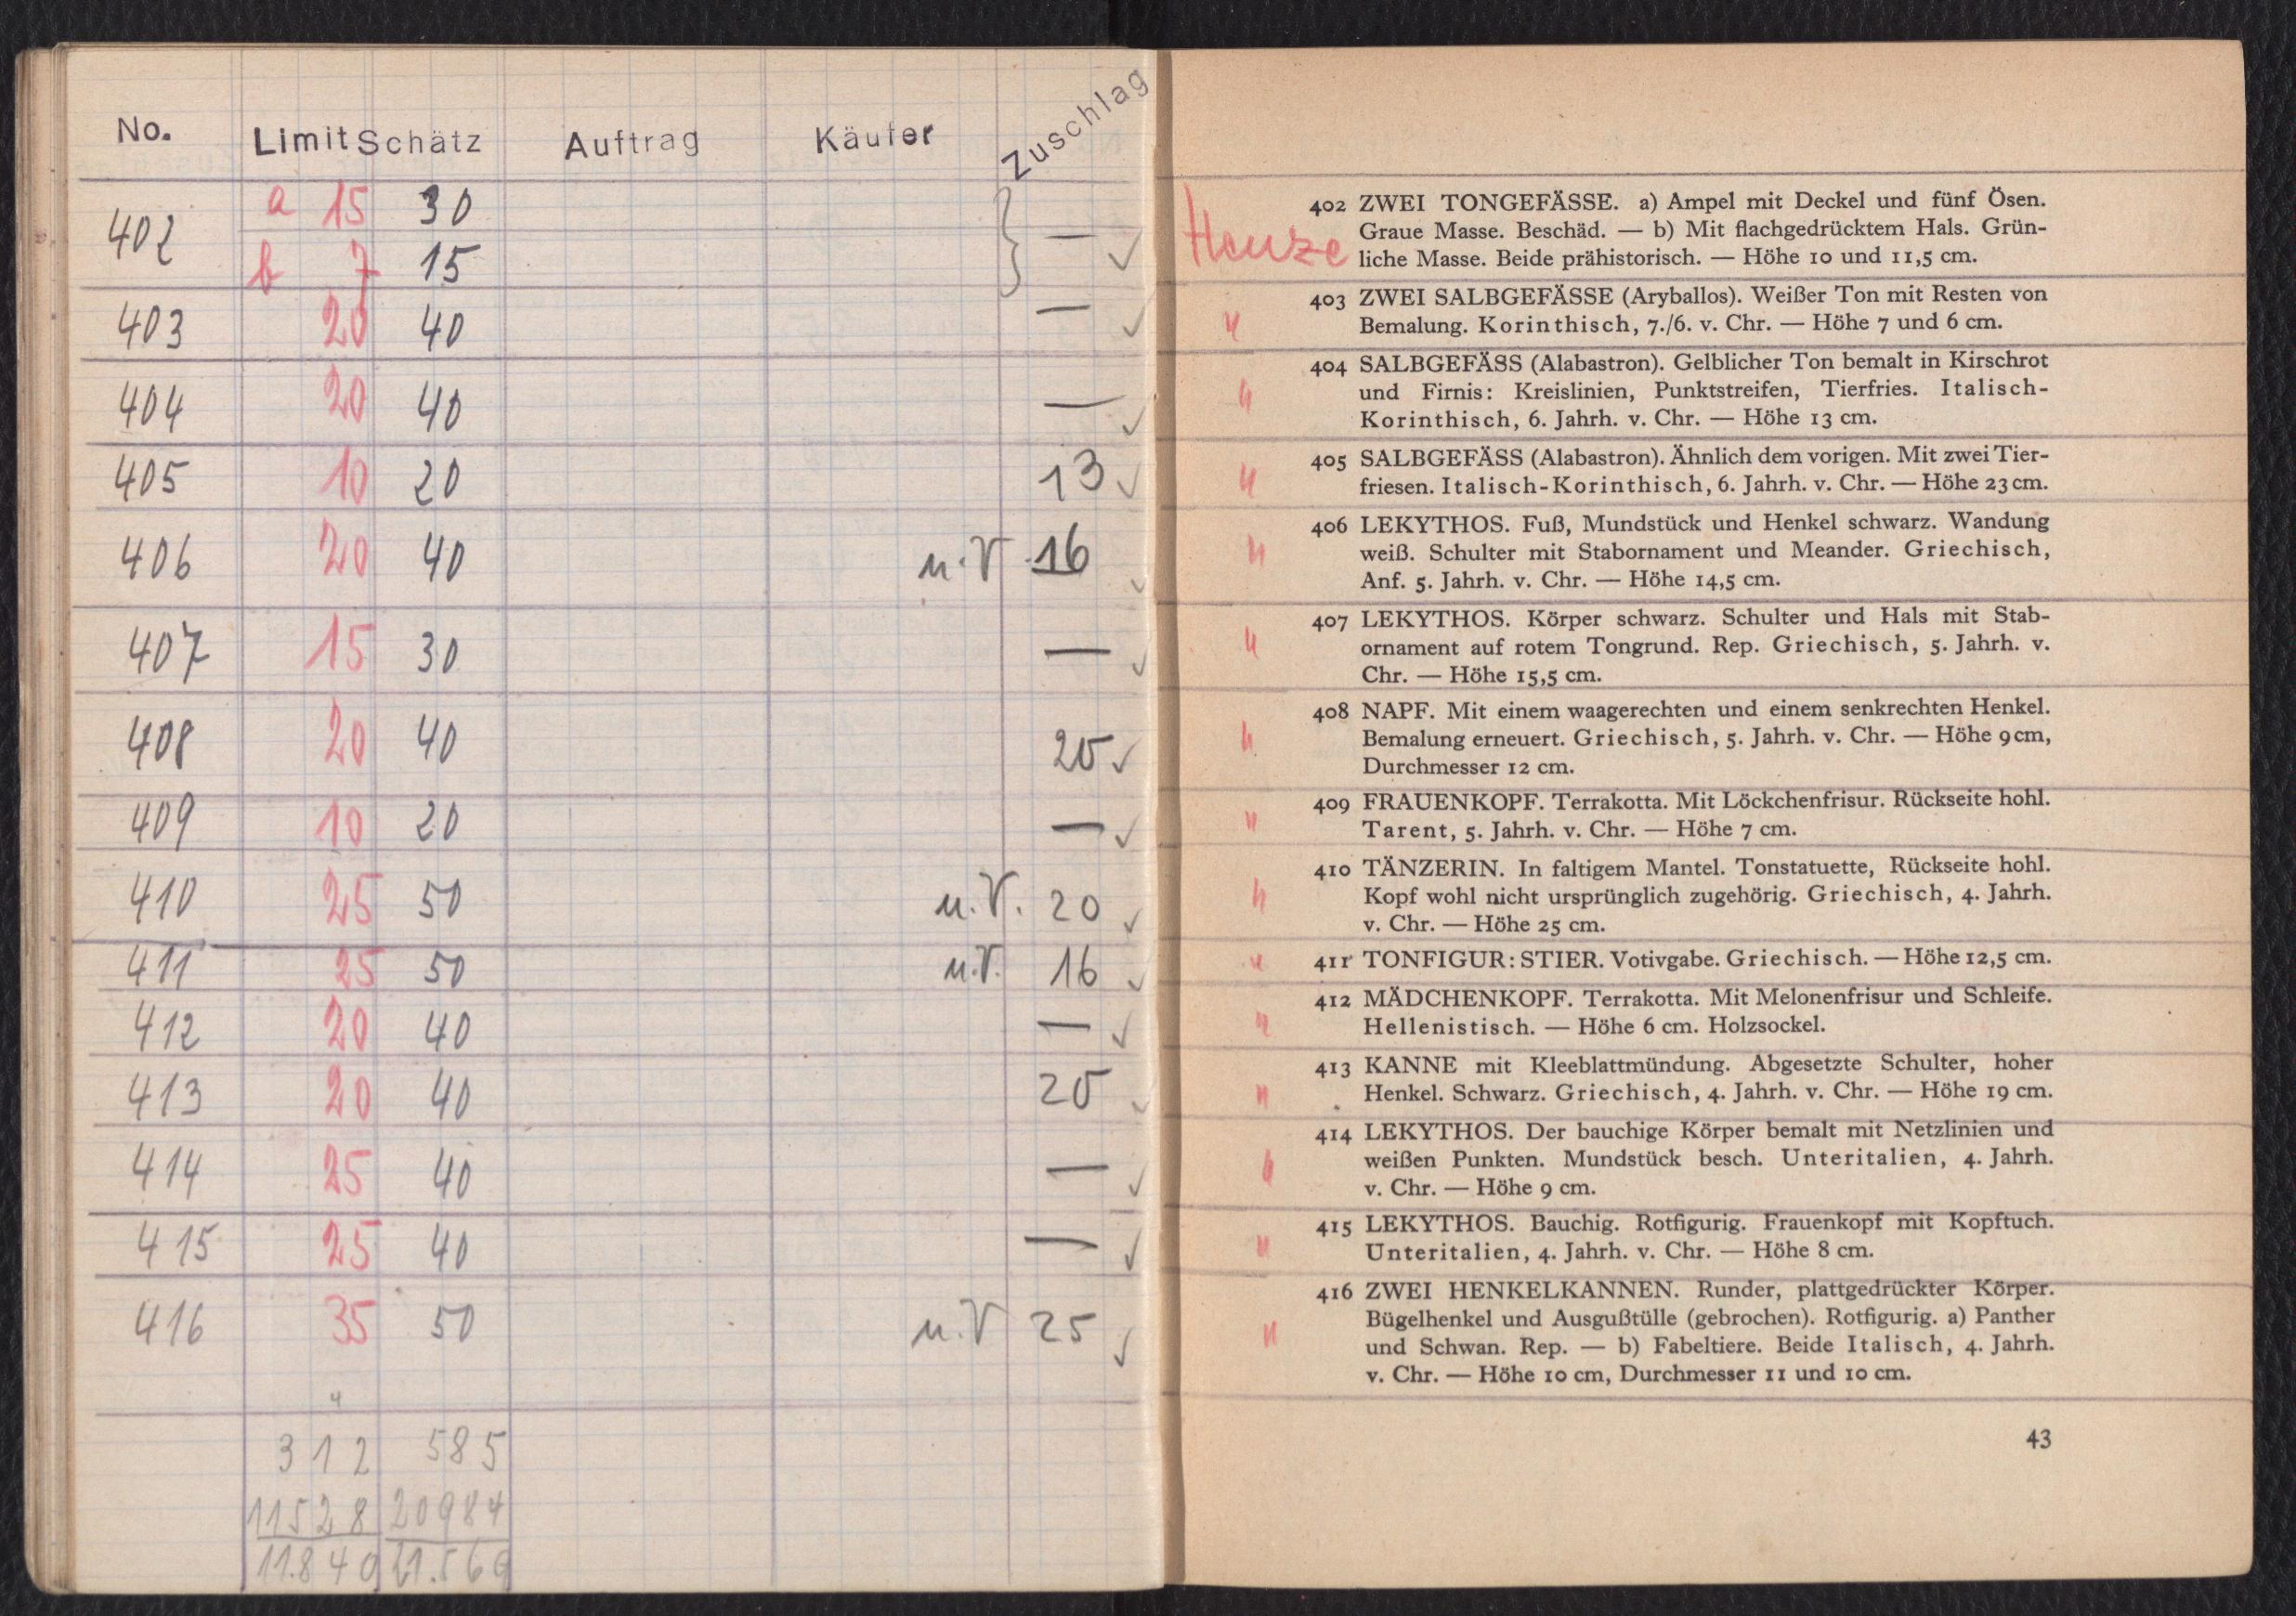 No. Limit Schätz Auftrag Käufer Zuschlag
402 a 15 30 —
b 7 15
403 20 40 —
404 20 40 —
405 10 20 13
406 20 40 u.V 16
407 15 30 —
408 20 40 20
409 10 20 —
410 25 50 u.V. 20
411 25 50 u.V. 16
412 20 40 —
413 20 40 20
414 25 40 —
415 25 40 —
416 35 50 u.V 25
312 585
11528 20984
11.840 21.569
402 ZWEI TONGEFÄSSE. a) Ampel mit Deckel und fünf Ösen.
Graue Masse. Beschäd. — b) Mit flachgedrücktem Hals. Grün-
liche Masse. Beide prähistorisch. — Höhe 10 und 11,5 cm.
403 ZWEI SALBGEFÄSSE (Aryballos). Weißer Ton mit Resten von
Bemalung. Korinthisch, 7./6. v. Chr. — Höhe 7 und 6 cm.
404 SALBGEFÄSS (Alabastron). Gelblicher Ton bemalt in Kirschrot
und Firnis: Kreislinien, Punktstreifen, Tierfries. Italisch-
Korinthisch, 6. Jahrh. v. Chr. — Höhe 13 cm.
405 SALBGEFÄSS (Alabastron). Ähnlich dem vorigen. Mit zwei Tier-
friesen. Italisch-Korinthisch, 6. Jahrh. v. Chr. — Höhe 23 cm.
406 LEKYTHOS. Fuß, Mundstück und Henkel schwarz. Wandung
weiß. Schulter mit Stabornament und Meander. Griechisch,
Anf. 5. Jahrh. v. Chr. — Höhe 14,5 cm.
407 LEKYTHOS. Körper schwarz. Schulter und Hals mit Stab-
ornament auf rotem Tongrund. Rep. Griechisch, 5. Jahrh. v.
Chr. — Höhe 15,5 cm.
408 NAPF. Mit einem waagerechten und einem senkrechten Henkel.
Bemalung erneuert. Griechisch, 5. Jahrh. v. Chr. — Höhe 9 cm,
Durchmesser 12 cm.
409 FRAUENKOPF. Terrakotta. Mit Löckchenfrisur. Rückseite hohl.
Tarent, 5. Jahrh. v. Chr. — Höhe 7 cm.
410 TÄNZERIN. In faltigem Mantel. Tonstatuette, Rückseite hohl.
Kopf wohl nicht ursprünglich zugehörig. Griechisch, 4. Jahrh.
v. Chr. — Höhe 25 cm.
411 TONFIGUR: STIER. Votivgabe. Griechisch. — Höhe 12,5 cm.
412 MÄDCHENKOPF. Terrakotta. Mit Melonenfrisur und Schleife.
Hellenistisch. — Höhe 6 cm. Holzsockel.
413 KANNE mit Kleeblattmündung. Abgesetzte Schulter, hoher
Henkel. Schwarz. Griechisch, 4. Jahrh. v. Chr. — Höhe 19 cm.
414 LEKYTHOS. Der bauchige Körper bemalt mit Netzlinien und
weißen Punkten. Mundstück besch. Unteritalien, 4. Jahrh.
v. Chr. — Höhe 9 cm.
415 LEKYTHOS. Bauchig. Rotfigurig. Frauenkopf mit Kopftuch.
Unteritalien, 4. Jahrh. v. Chr. — Höhe 8 cm.
416 ZWEI HENKELKANNEN. Runder, plattgedrückter Körper.
Bügelhenkel und Ausgußtülle (gebrochen). Rotfigurig. a) Panther
und Schwan. Rep. — b) Fabeltiere. Beide Italisch, 4. Jahrh.
v. Chr. — Höhe 10 cm, Durchmesser 11 und 10 cm.
43